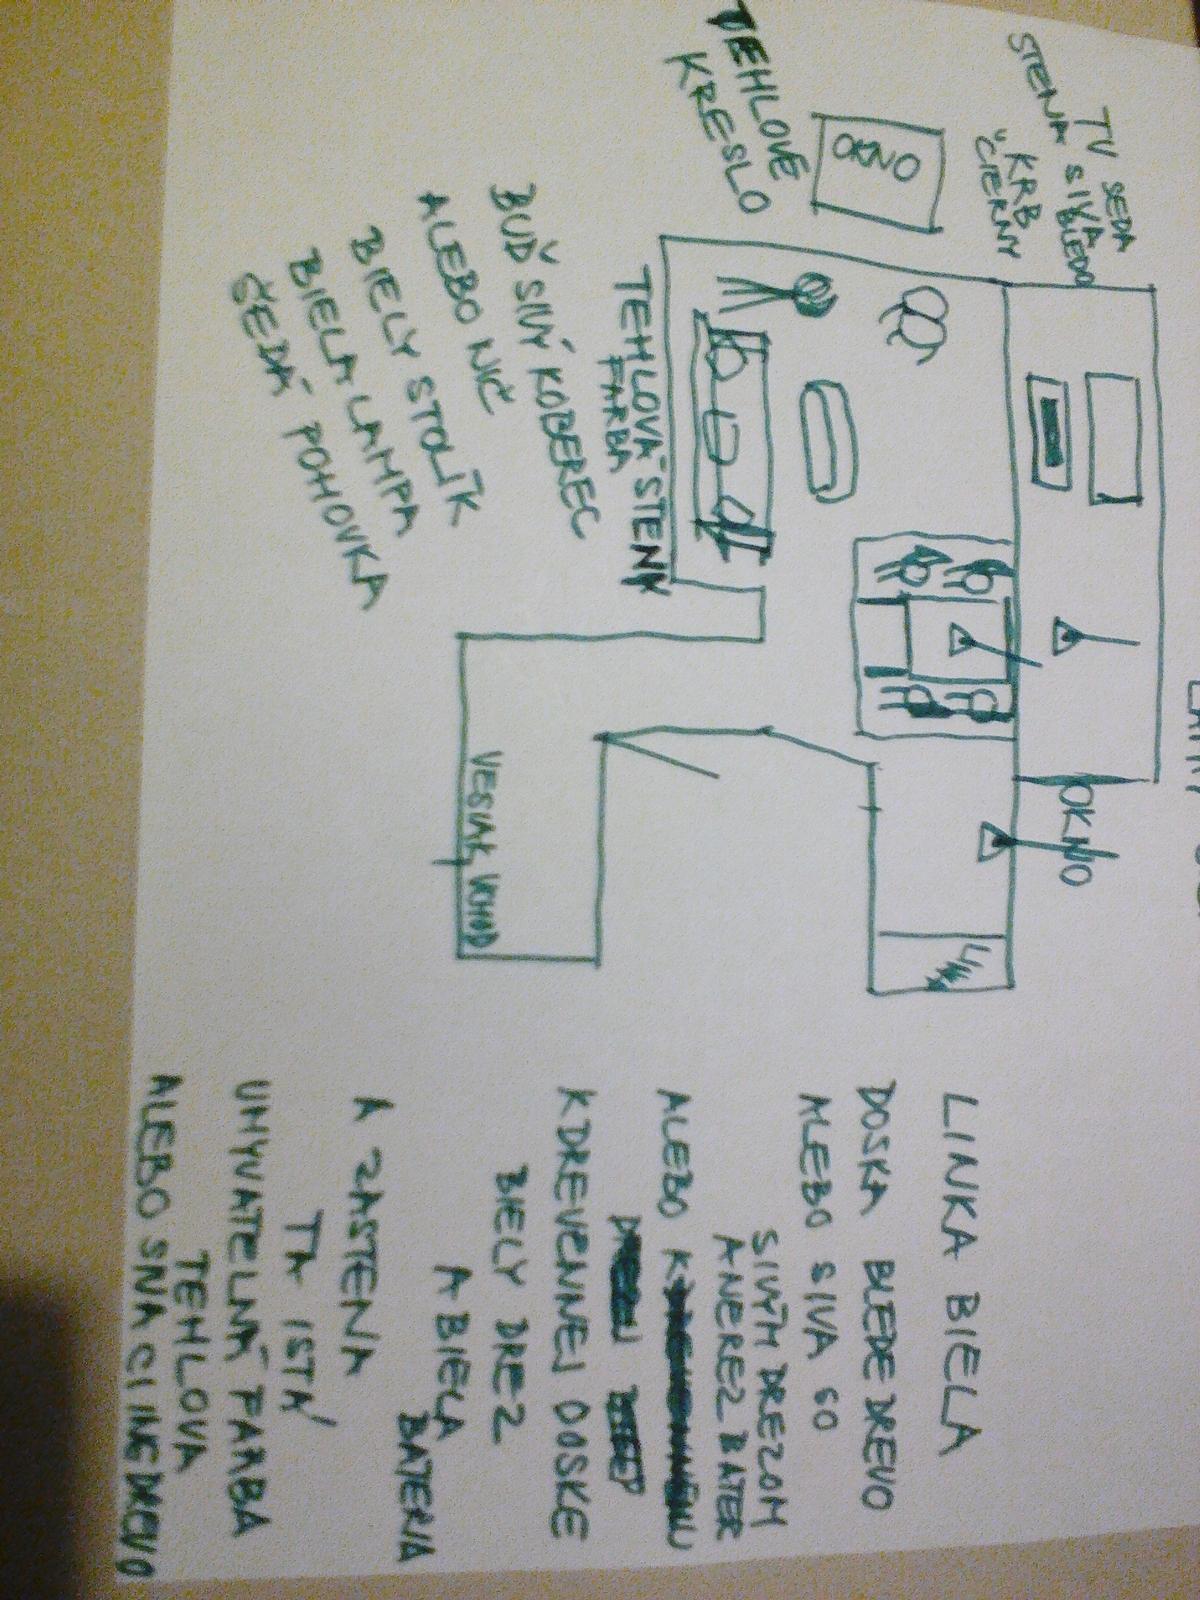 TEHLOVÉ
KRESLO
OKNO
TV SEDA
STENA SIVA
BLEDO
KRB
ČIERNY
TEHLOVÁ STENA
FARBA
BUĎ SIVÝ KOBEREC
ALEBO NIČ
BIELY STOLÍK
BIELA LAMPA
ŠEDÁ POHOVKA
OKNO
VESIAK, VCHOD
LINKA BIELA
DOSKA BLEDE DREVO
ALEBO SIVA SO
SIVÝM DREZOM
A NEREZ BATER
ALEBO
K DREVENNEJ DOSKE
BIELY DREZ
A BIELA
BATERIA
A ZASTENA
TA ISTÁ
UMYVATELNÁ FARBA
TEHLOVA
ALEBO